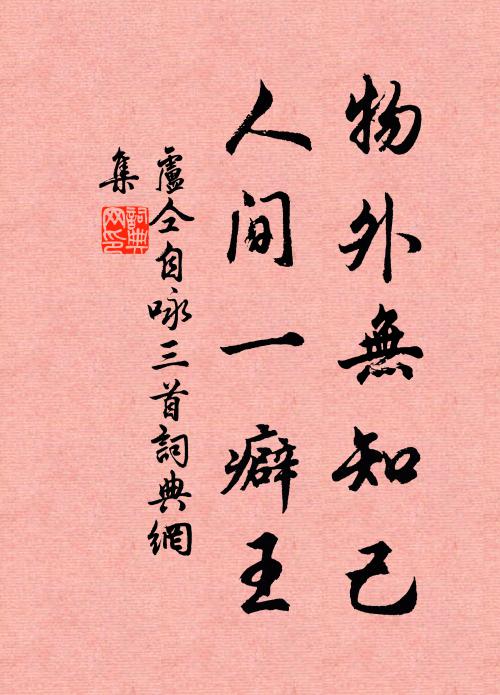 物外無知己
人间一癖王
盧仝自咏三首詞典網
集
詞典
网印